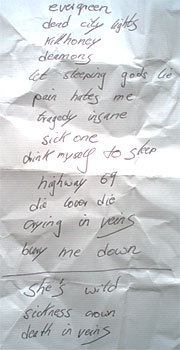 evergreen
dead city lights
killhoney
deamons
let sleeping gods lie
pain hates me
tragedy insane
sick one
drink myself to sleep
highway 69
die lover die
crying in veins
bury me down
she's wild
sickness crown
death in veins